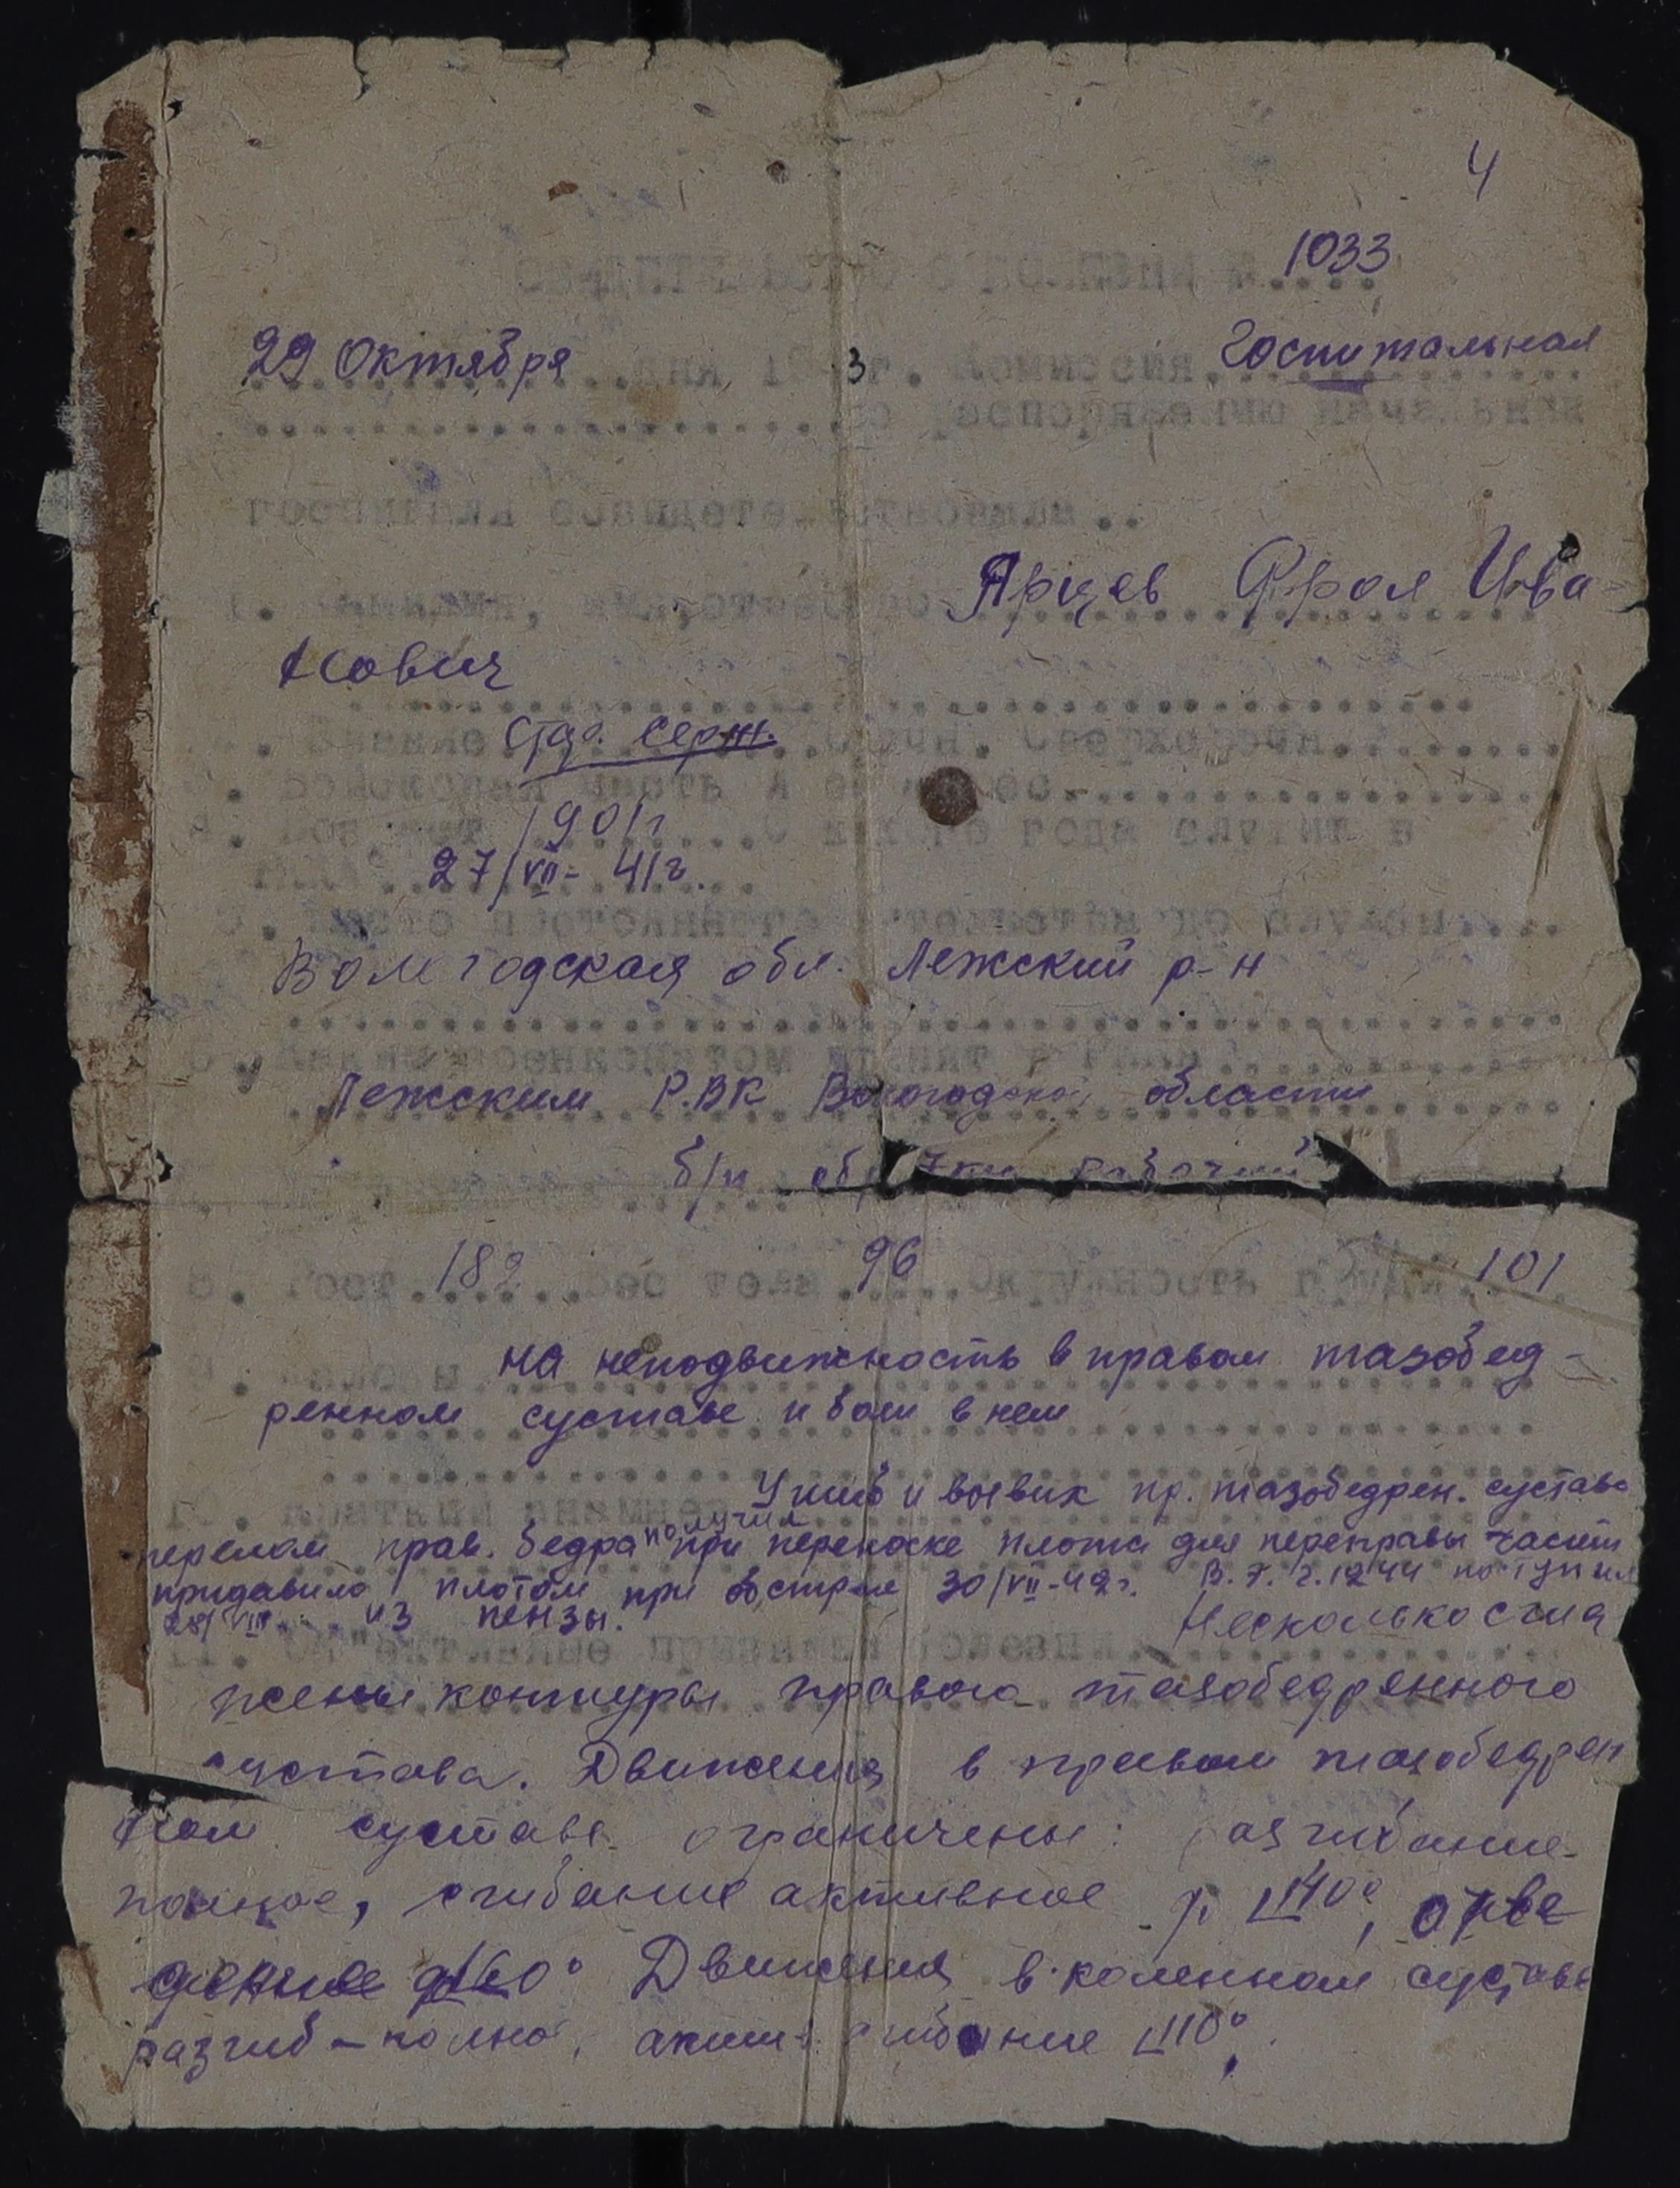 4
СВИДЕТЕЛЬСТВО О БОЛЕЗНИ № 1033
29 Октября дня 194 3 г. Комиссия Госпитальная
по распоряжению начальника
госпиталя освидетельствовала..
1. Фамилия, имя, отчество Ярцев Фрол Ива-
нович
Звание Стар. Серж.
4. Год рожд. 1901 г С какого года служит в
27/VII-41г.
5. Место постоянного жительства до службы
Вологодская обл. Лежский р-н
6. Каким военкоматом принят в
Лежским Р.ВК Вологодской области
б/п рабочий
8. Рост 182 Вес тела 96 Окружность груди 101
9. Жалобы на неподвижность в правом тазобед-
ренном суставе и боли в нем
10. Краткий анамнез Ушиб и вывих пр. тазобедрен. сустава
перелом прав. бедра получил при переноске плота для переправы части
придавило плотом при 30/VII-42г. В. Г. 1244 поступил
28/VIII из Пензы.
11. Объективные признаки болезни Несколько сгла
жены контуры правого тазобедренного
сустава. Движения в правом тазобедрен
ном суставе ограничены: разгибание-
полное, сгибание активное 140°, отве
дение 160° Движения в коленном суставе
разгиб - полно, актив. сгибание 110°.